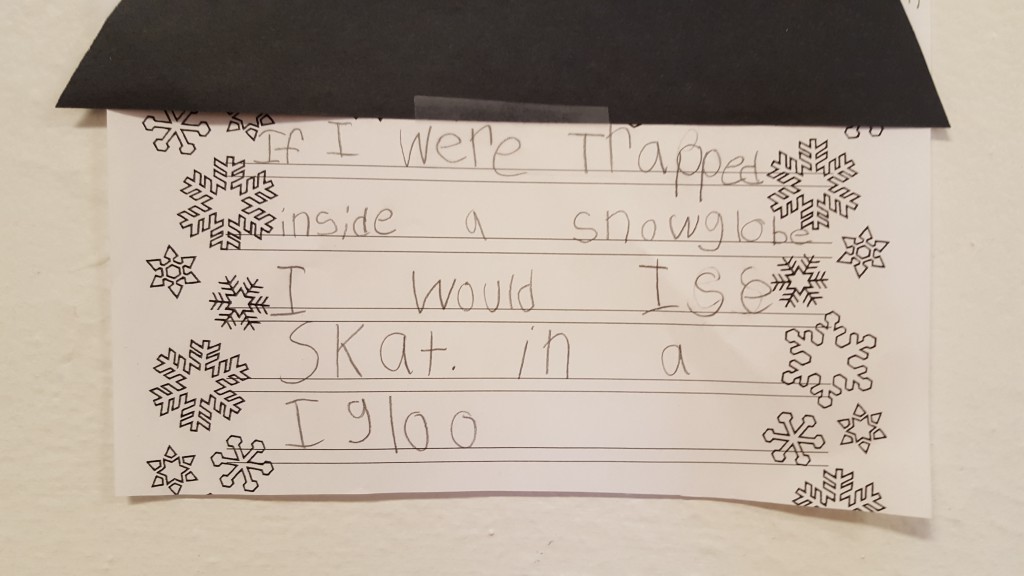 If I were Trapped
inside a snowglobe
I would Ise
Skat. in a
Igloo